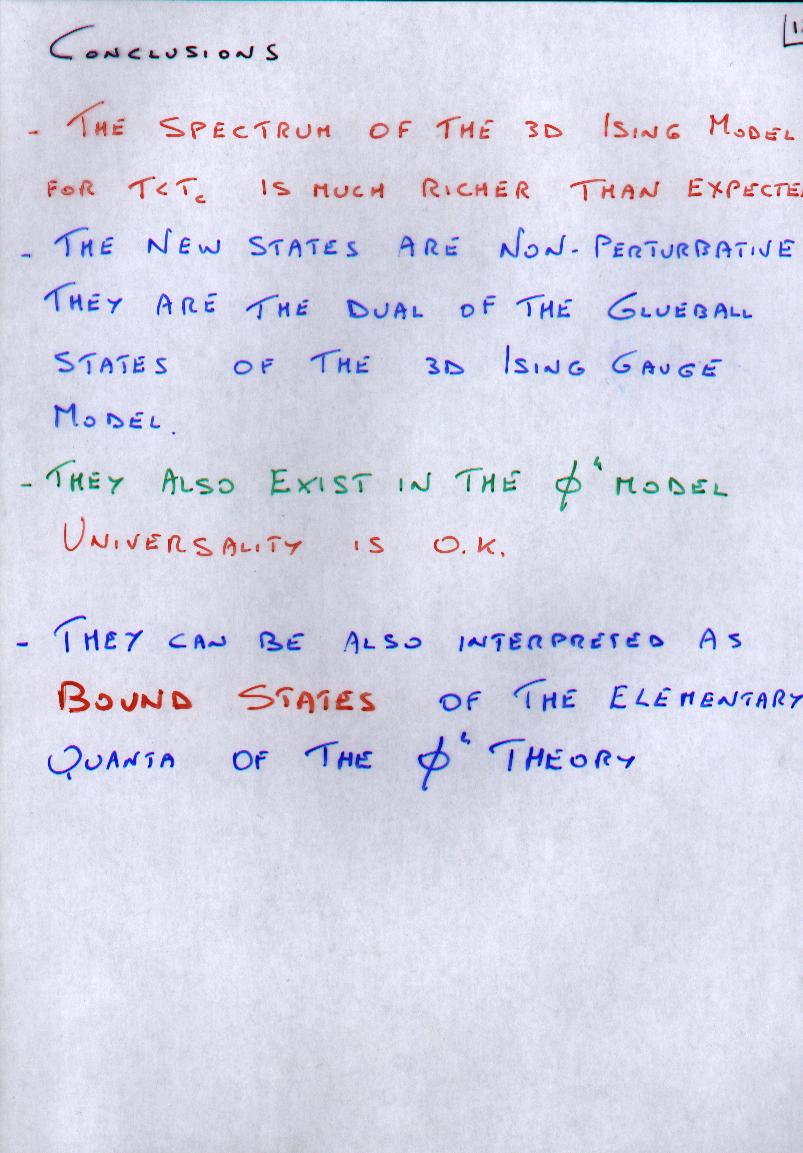 CONCLUSIONS
- THE SPECTRUM OF THE 3D ISING MODEL
FOR T<Tc IS MUCH RICHER THAN EXPECTE
- THE NEW STATES ARE NON-PERTURBATIVE
THEY ARE THE DUAL OF THE GLUEBALL
STATES OF THE 3D ISING GAUGE
MODEL.
- THEY ALSO EXIST IN THE ϕ⁴ MODEL
UNIVERSALITY IS O.K.
- THEY CAN BE ALSO INTERPRETED AS
BOUND STATES OF THE ELEMENTARY
QUANTA OF THE ϕ⁴ THEORY